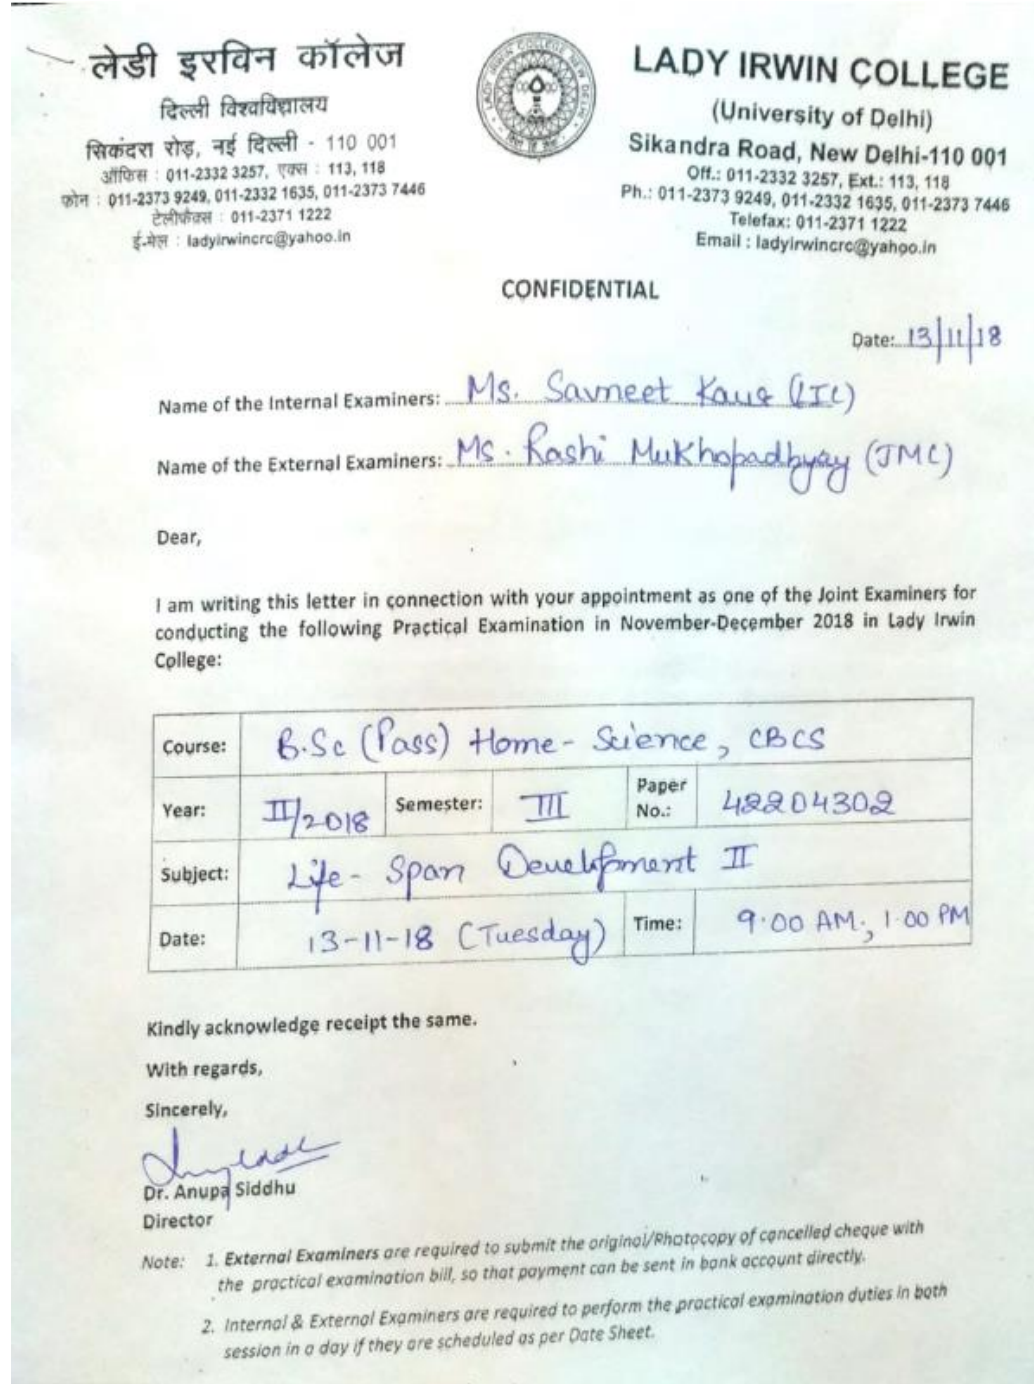 लेडी इरविन कॉलेज
दिल्ली विश्वविद्यालय
सिकंदरा रोड़, नई दिल्ली - 110 001
ऑफिस : 011-2332 3257, एक्स : 113, 118
फोन : 011-2373 9249, 011-2332 1635, 011-2373 7446
टेलीफैक्स : 011-2371 1222
ई-मेल : ladyirwincrc@yahoo.in
LADY IRWIN COLLEGE NEW DELHI
LADY IRWIN COLLEGE
(University of Delhi)
Sikandra Road, New Delhi-110 001
Off.: 011-2332 3257, Ext.: 113, 118
Ph.: 011-2373 9249, 011-2332 1635, 011-2373 7446
Telefax: 011-2371 1222
Email : ladyirwincrc@yahoo.in
CONFIDENTIAL
Date: 13/11/18
Name of the Internal Examiners: Ms. Savneet Kaur (LIC)
Name of the External Examiners: Ms. Rashi Mukhopadhyay (JMC)
Dear,
I am writing this letter in connection with your appointment as one of the Joint Examiners for
conducting the following Practical Examination in November-December 2018 in Lady Irwin
College:
Course: B.Sc (Pass) Home-Science, CBCS
Year: II/2018 Semester: III Paper No.: 42204302
Subject: Life-Span Development II
Date: 13-11-18 (Tuesday) Time: 9.00 AM., 1.00 PM
Kindly acknowledge receipt the same.
With regards,
Sincerely,
Dr. Anupa Siddhu
Director
Note: 1. External Examiners are required to submit the original/Photocopy of cancelled cheque with
the practical examination bill, so that payment can be sent in bank account directly.
2. Internal & External Examiners are required to perform the practical examination duties in both
session in a day if they are scheduled as per Date Sheet.